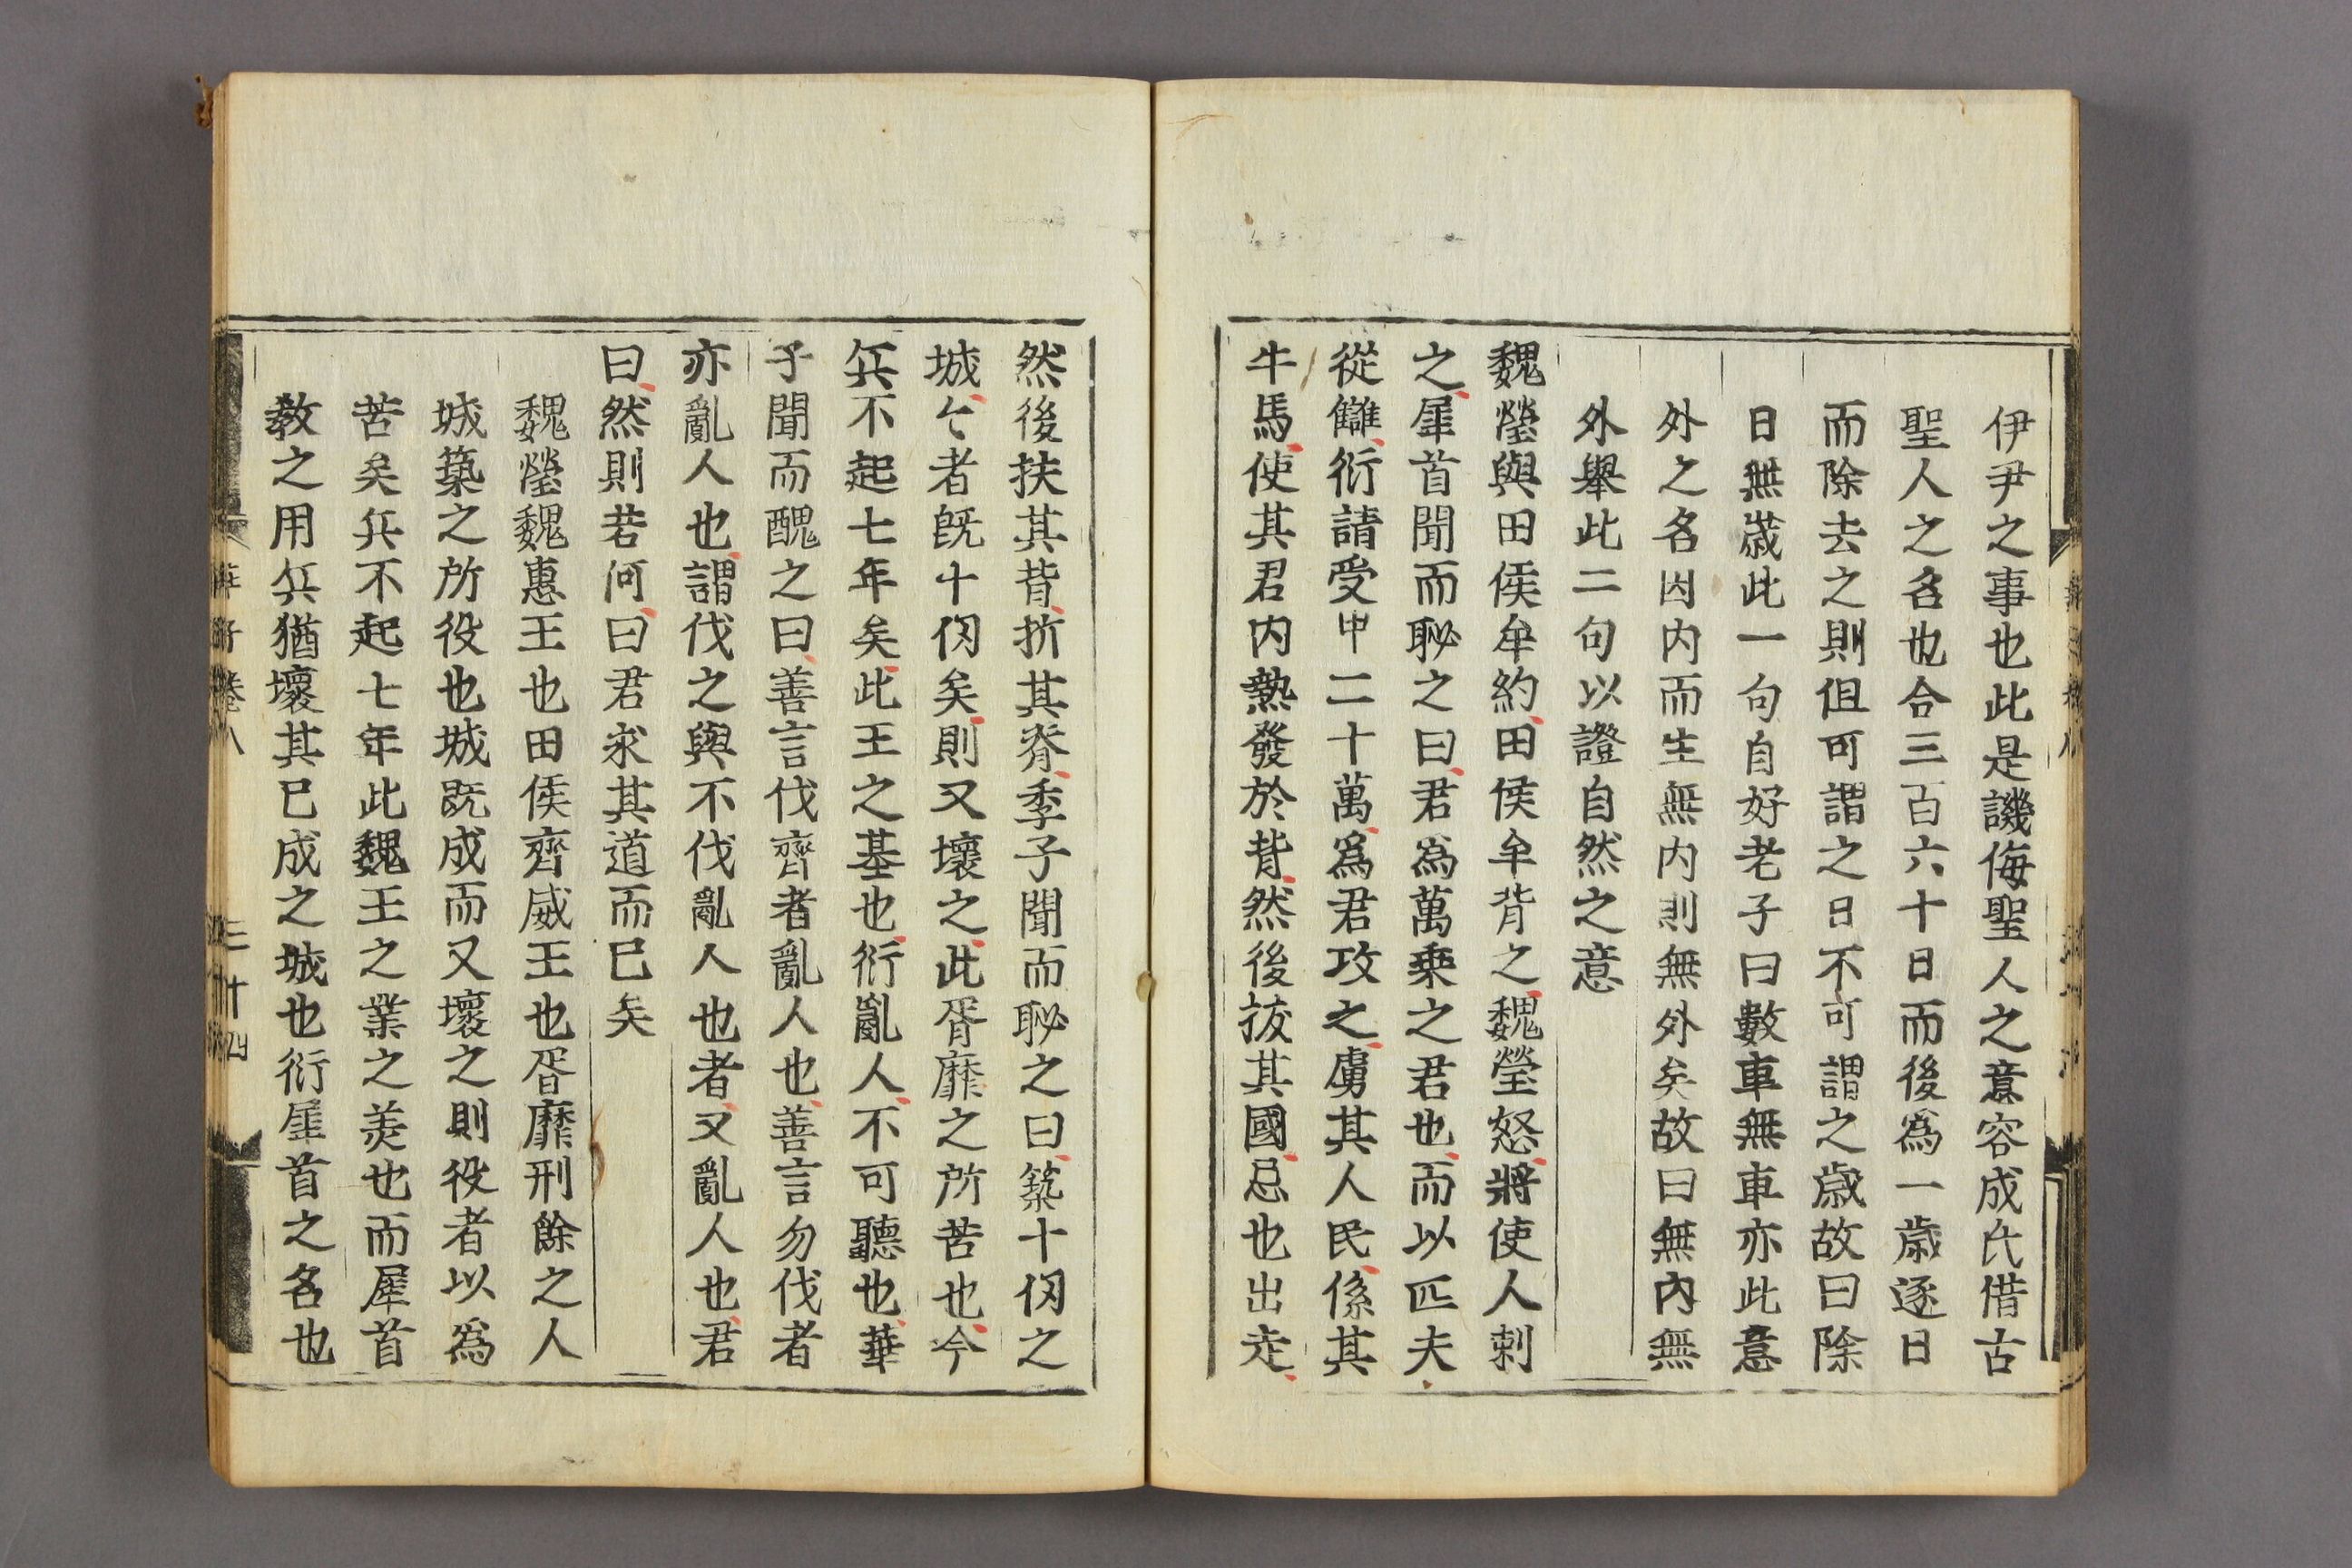 伊尹之事也此是譏侮聖人之意容成氏借古
聖人之名也合三百六十日而後爲一歲逐日
而除去之則但可謂之日不可謂之歲故曰除
日無歲此一句自好老子曰數車無車亦此意
外之名因内而生無内則無外矣故曰無內無
外舉此二句以證自然之意
魏瑩與田侯牟約田侯牟背之魏瑩怒將使人刺
之犀首聞而恥之曰君爲萬乗之君也而以匹夫
從讎衍請受甲二十萬爲君攻之虜其人民係其
牛馬使其君内熱發於背然後拔其國忌也出走
然後抶其背折其脊季子聞而恥之曰築十仞之
城〻者旣十仞矣則又壞之此胥靡之所苦也今
兵不起七年矣此王之基也衍亂人不可聽也華
子聞而醜之曰善言伐齊者亂人也善言勿伐者
亦亂人也謂伐之與不伐亂人也者又亂人也君
曰然則若何曰君求其道而已矣
魏瑩魏惠王也田侯齊威王也胥靡刑餘之人
城築之所役也城既成而又壞之則役者以爲
苦矣兵不起七年此魏王之業之羙也而犀首
教之用兵猶壞其已成之城也衍犀首之名也
莊子卷八
三十四